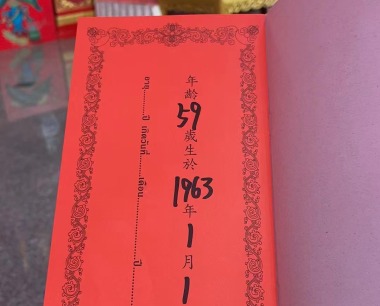 年齡59歲生於1963年1月1
อายุ..........ปี เกิดวันที่..........เดือน....................ปี